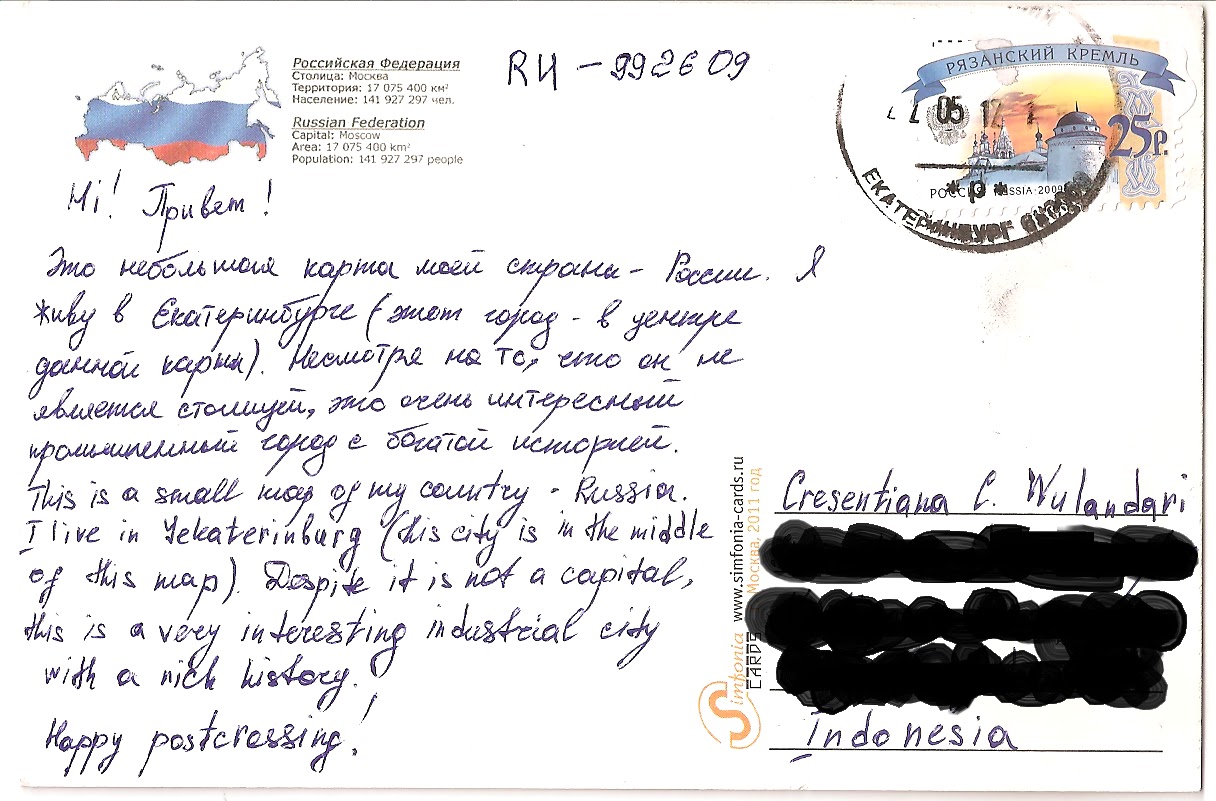 Российская Федерация
Столица: Москва
Территория: 17 075 400 км²
Население: 141 927 297 чел.
Russian Federation
Capital: Moscow
Area: 17 075 400 km²
Population: 141 927 297 people
RU - 992609
РЯЗАНСКИЙ КРЕМЛЬ
25р.
05 12
РОССИЯ RUSSIA·2009
ЕКАТЕРИНБУРГ
Hi! Привет!
Это небольшая карта моей страны - России. Я
живу в Екатеринбурге (этот город - в центре
данной карты). Несмотря на то, что он не
является столицей, это очень интересный
промышленный город с богатой историей.
This is a small map of my country - Russia.
I live in Yekaterinburg (this city is in the middle
of this map). Despite it is not a capital,
this is a very interesting industrial city
with a rich history.
Happy postcrossing!
Simfonia CARDS www.simfonia-cards.ru
Москва, 2011 год
Cresentiana C. Wulandari
Indonesia